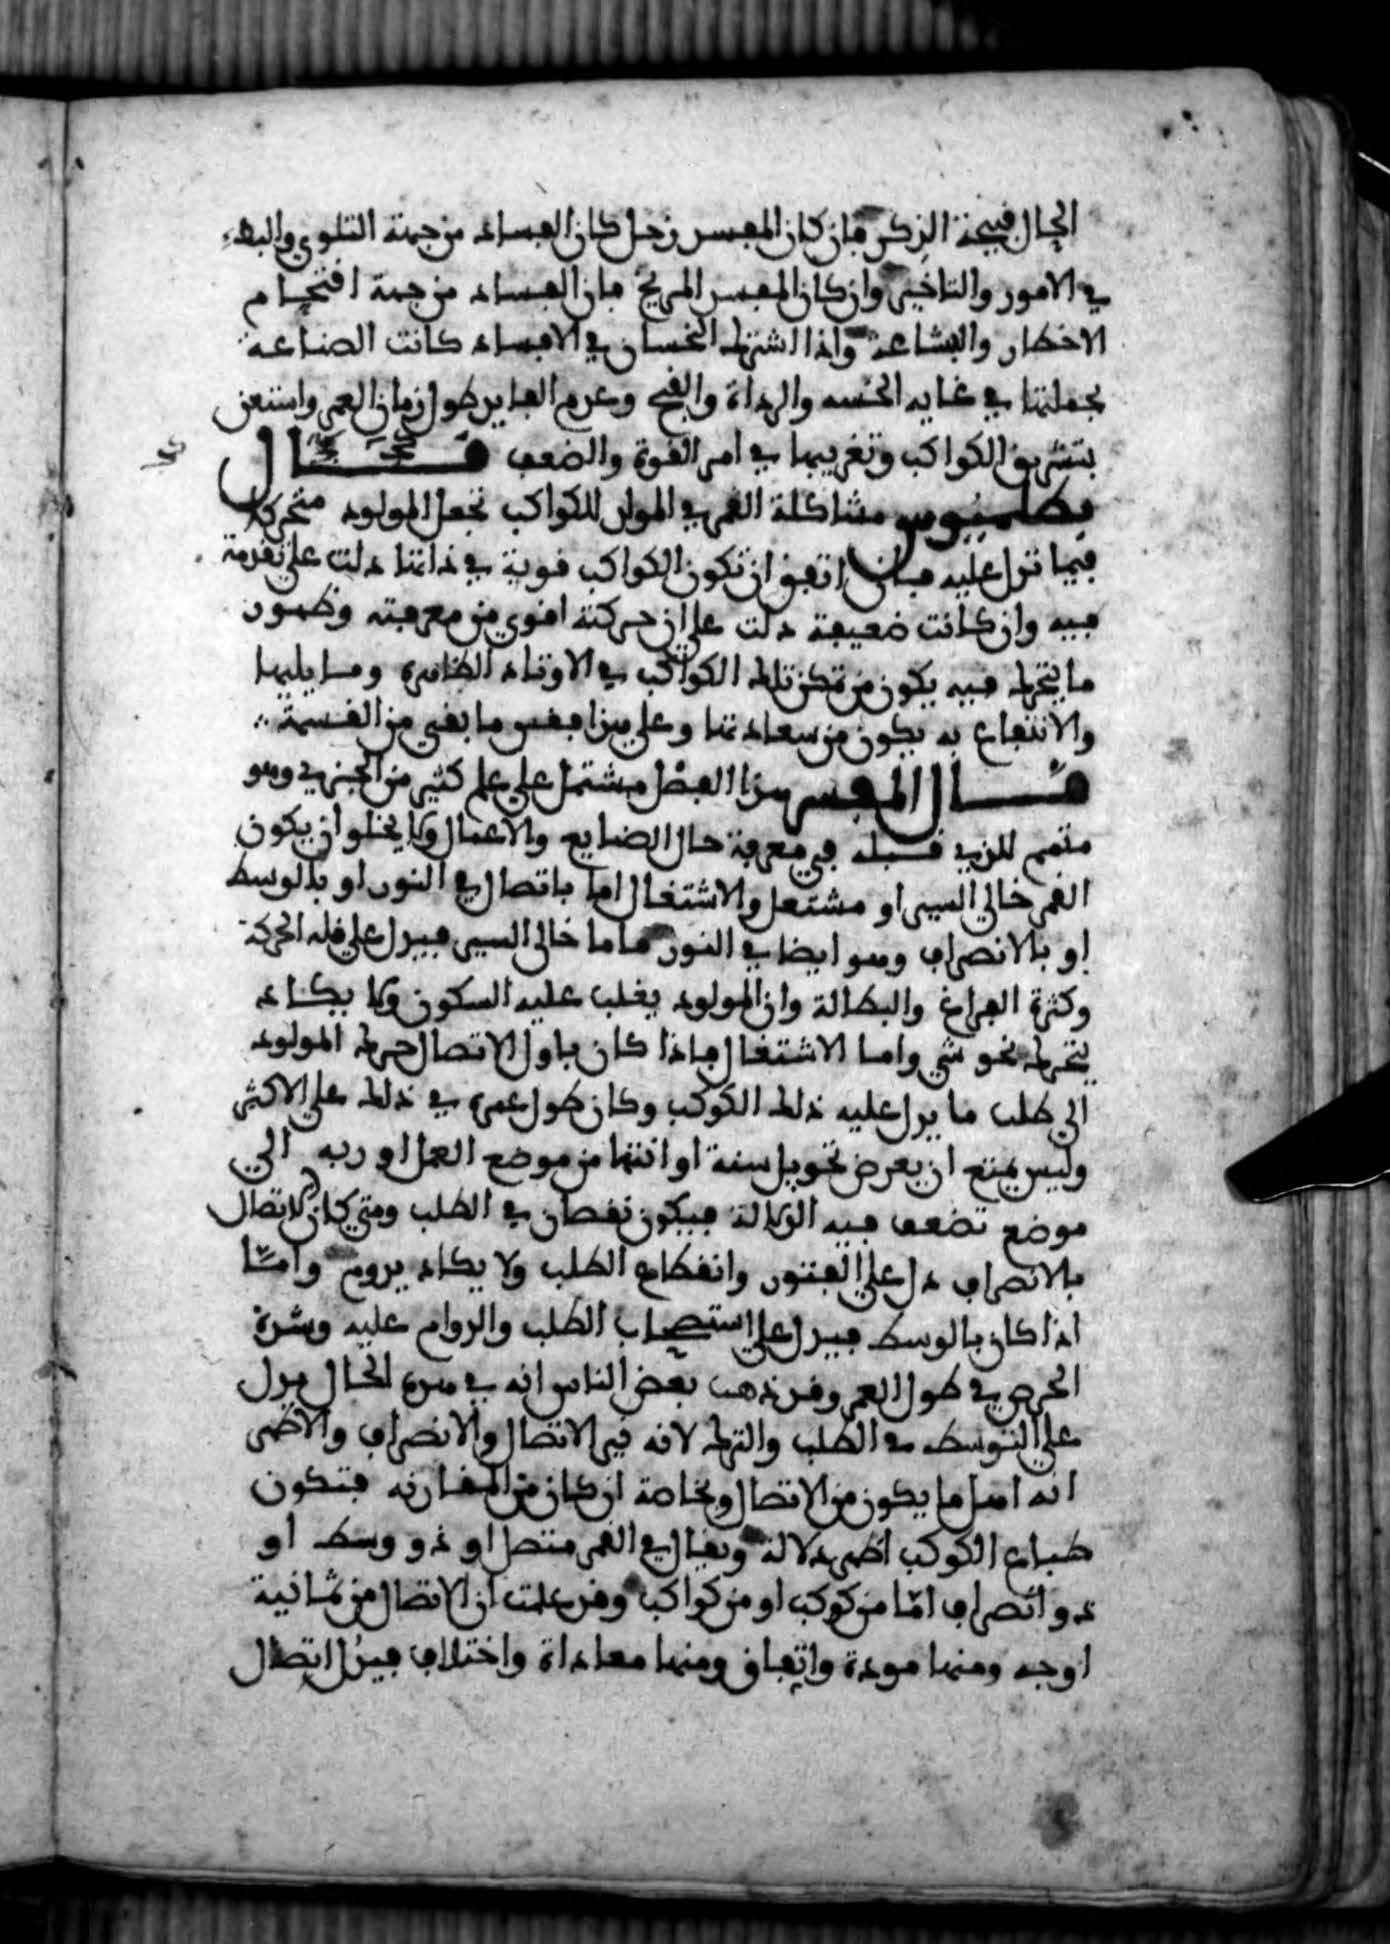 الحال قبيحة الذكر فان كان المفسد زحل كان الفساد من جهة التلوي والبطء
في الامور والتاخير وان كان المفسد المريخ فان الفساد من جهة اقتحام
الاخطار والبشاعة واذا اشترك النحسان في الافساد كانت الصناعة
بجملتها في غاية الخسة والرداة والقبح وعدم الفايدة طول زمان العمر واستعن
بتشريق الكواكب وتغريبها في امر القوة والضعف قــال
بطلميوس مشاكلة القمر في المولد للكواكب تجعل المولود متحركا
فيما تدل عليه فان اتفق ان تكون الكواكب قوية في ذاتها دلت على تقدمة
فيه وان كانت ضعيفة دلت على ان حركته اقوى من معرفته وظهور
ما يتحرك فيه يكون من تمكن تلك الكواكب في الاوتاد الظاهرة وما يليها
والانتفاع به يكون من سعادتها وعلى هذا فقس ما بقي من القسمة
قــال المفسر هذا الفصل مشتمل على علم كثير من الجزءي وهو
متمم للذي قبله في معرفة حال الصنايع والاعمال ولا يخلو ان يكون
القمر خالي السير او مشتغل والاشتغال اما باتصال في النور او بالوسط
او بالانصراف وهو ايضا في النور فاما خالي السير فيدل على قلة الحركة
وكثرة الفراغ والبطالة وان المولود يغلب عليه السكون ولا يكاد
يتحرك نحو شي واما الاشتغال فاذا كان باول الاتصال حرك المولود
الى طلب ما يدل عليه ذلك الكوكب وكان طول عمره في ذلك على الاكثر
وليس يمتنع ان يعرض تحويل سنة او انتها من موضع العمل او ربه الى
موضع تضعف فيه الدلالة فيكون نقصان في الطلب ومتى كان الاتصال
بالانصراف دل على الفتور وانقطاع الطلب ولا يكاد يروم واما
اذا كان بالوسط فيدل على استصحاب الطلب والدوام عليه وشدة
الحرص في طول العمر وقد ذهب بعض الناس انه في هذه الحال يدل
على التوسط في الطلب والترك لانه فيه الاتصال والانصراف والاظهر
انه امثل ما يكون من الاتصال وبخاصة ان كان من المقارنه فتكون
طباع الكوكب اظهر دلالة ويقال في القمر متصل او ذو وسط او
ذو انصراف اما من كوكب او من كواكب وقد علمت ان الاتصال من ثمانية
اوجه ومنها مودة واتفاق ومنها معاداة واختلاف فيدل اتصال